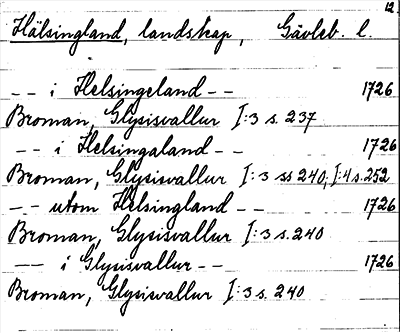 12
Hälsingland, landskap, Gävleb. l.
-- i Helsingeland -- 1726
Broman, Glysisvallur I:3 s. 237
-- i Helsingaland -- 1726
Broman, Glysisvallur I:3 ss 240, I:4 s. 252
-- utom Helsingland -- 1726
Broman, Glysisvallur I:3 s. 240
-- i Glysisvallur -- 1726
Broman, Glysisvallur I:3 s. 240